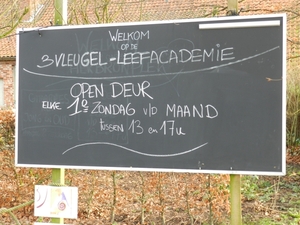 WELKOM
OP DE
3VLEUGEL-LEEFACADEMIE
OPEN DEUR
ELKE 1e ZONDAG v/d MAAND
tussen 13 en 17u